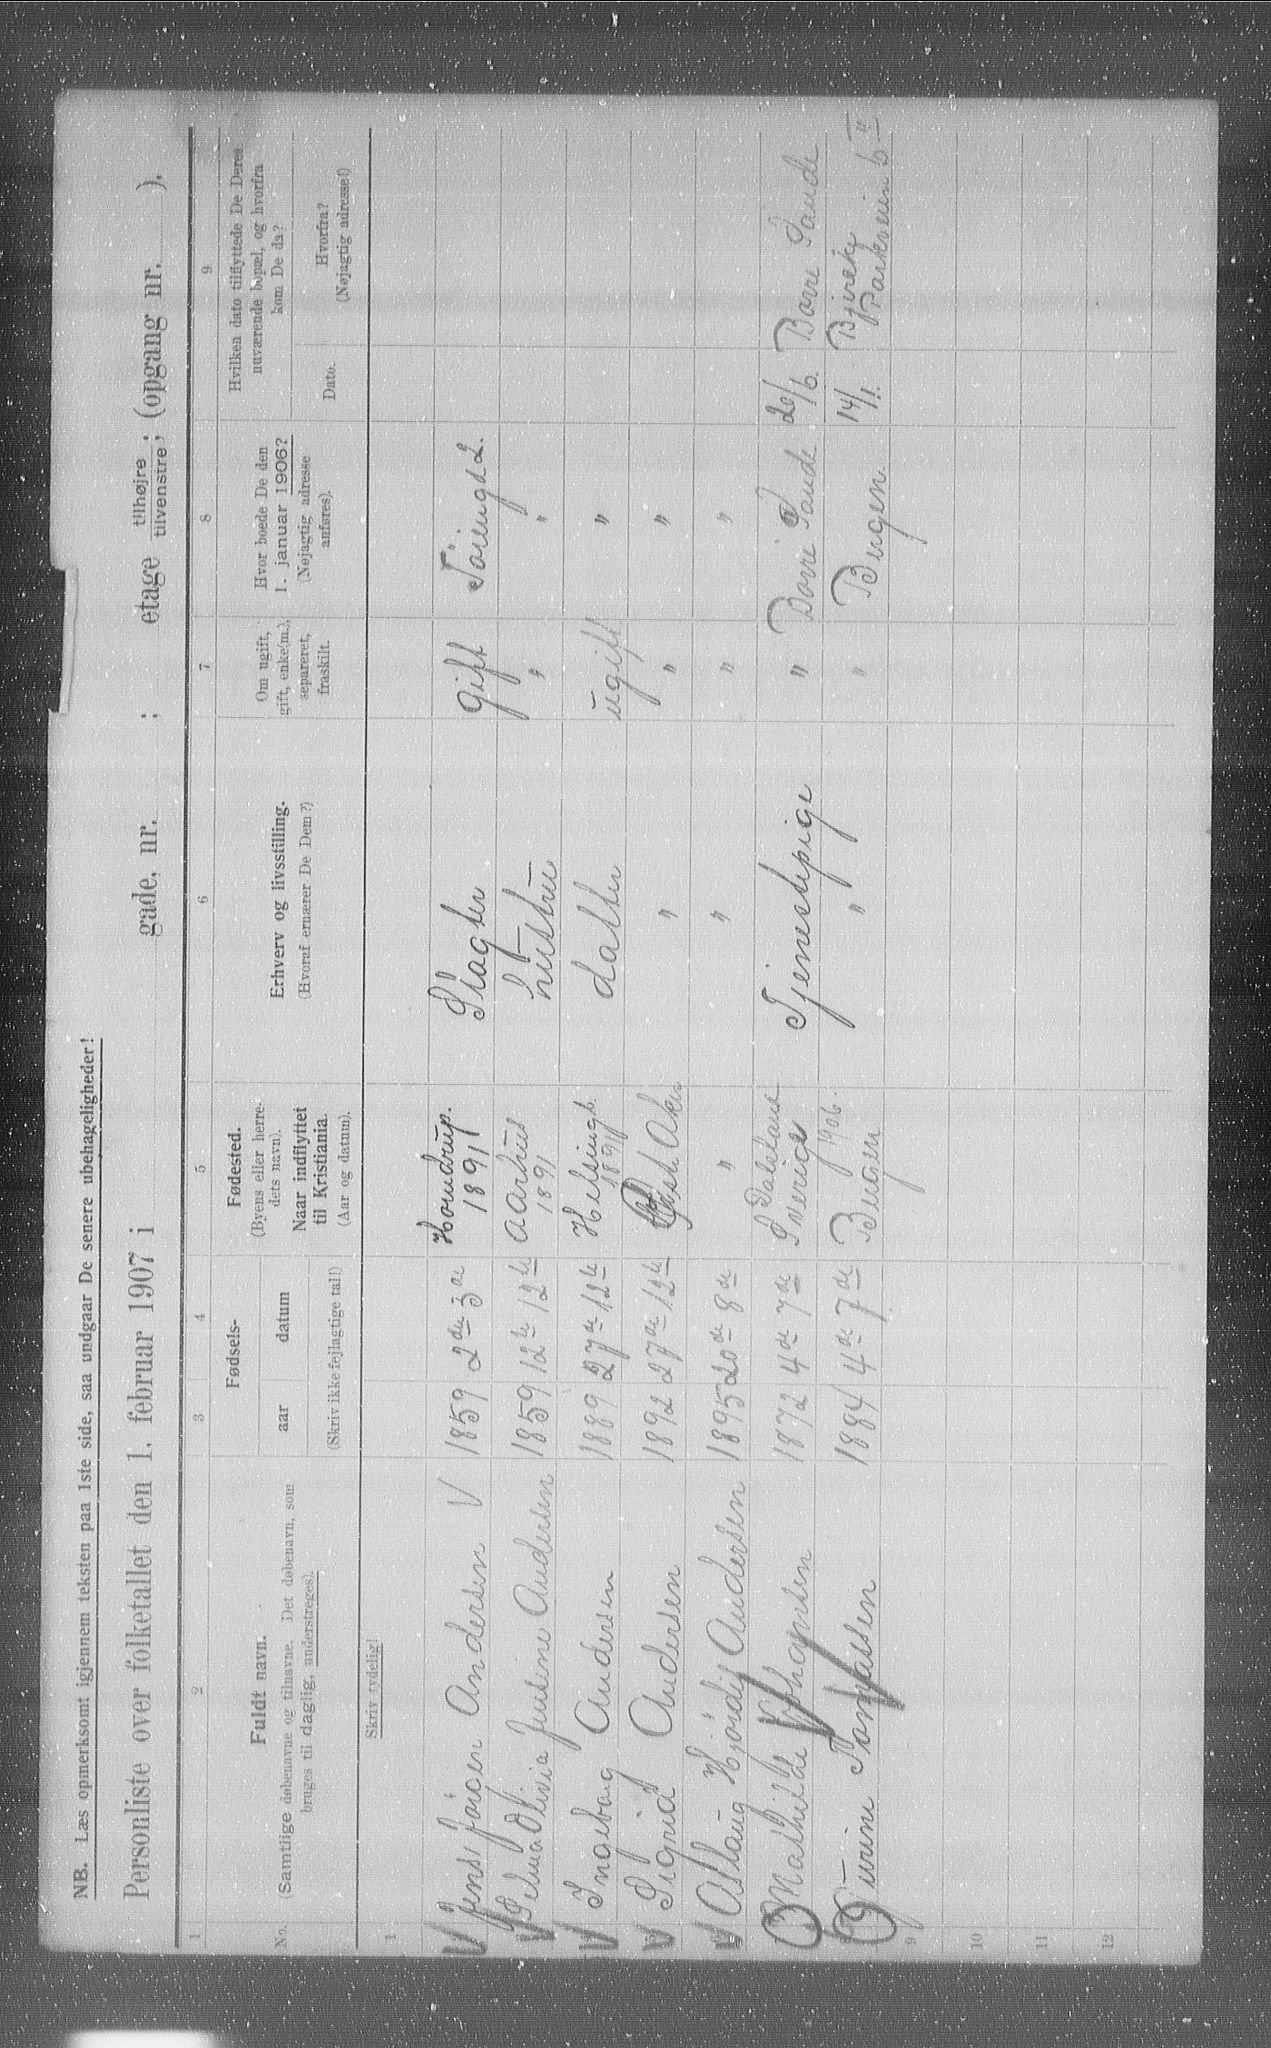 NB. Læs opmerksomt igjennem teksten paa 1ste side, saa undgaar De senere ubehageligheder!
Personliste over folketallet den 1. februar 1907 i gade, nr. ; etage tilhøjre ; (opgang nr. ).
tilvenstre;
1 2 3 4 5 6 7 8 9
No. Fuldt navn.
(Samtlige døbenavne og tilnavne. Det døbenavn, som
bruges til daglig, understreges).
Fødsels-
aar datum
(Skriv ikke fejlagtige tal!)
Fødested.
(Byens eller herre-
dets navn).
Naar indflyttet
til Kristiania.
(Aar og datum).
Erhverv og livsstilling.
(Hvoraf ernærer De Dem?)
Om ugift,
gift, enke(m.),
separeret,
fraskilt.
Hvor boede De den
1. januar 1906?
(Nøjagtig adresse
anføres).
Hvilken dato tilflyttede De Deres
nuværende bopæl, og hvorfra
kom De da?
Dato. Hvorfra?
(Nøjagtig adresse!)
Skriv tydelig!
1
Jens Jörgen Andersen V 1859 2de 3de Homdrup. 1891 Slagter gift
Selma Olivia Jensine Andersen 1859 12te 12te Aarhus 1891 hustru " "
Ingeborg Andersen 1889 27de 12te Helsingb. 1891 datter ugift "
Sigrid Andersen 1892 27de 12te Aker " " "
Aslaug Hjördis Andersen 1895 20de 8de " " " "
Mathilde Johansen 1872 4de 7de Dalsland Sverige Tjenestepige " Borre Sande 20/6. Borre Sande
Tomassen 1884 4de 7de Bergen 1906. " " Bergen 14/1. Parkveien 6
9
10
11
12